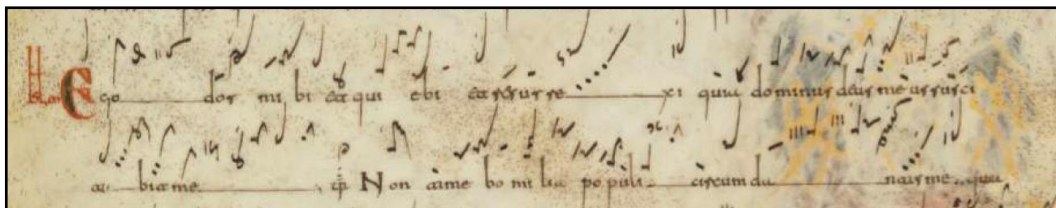 Ego dor mi bi et qui ebi et resurre xi quia dominus deus meus susci
ta bit me Non timebo milia populi circumda ntis me quia